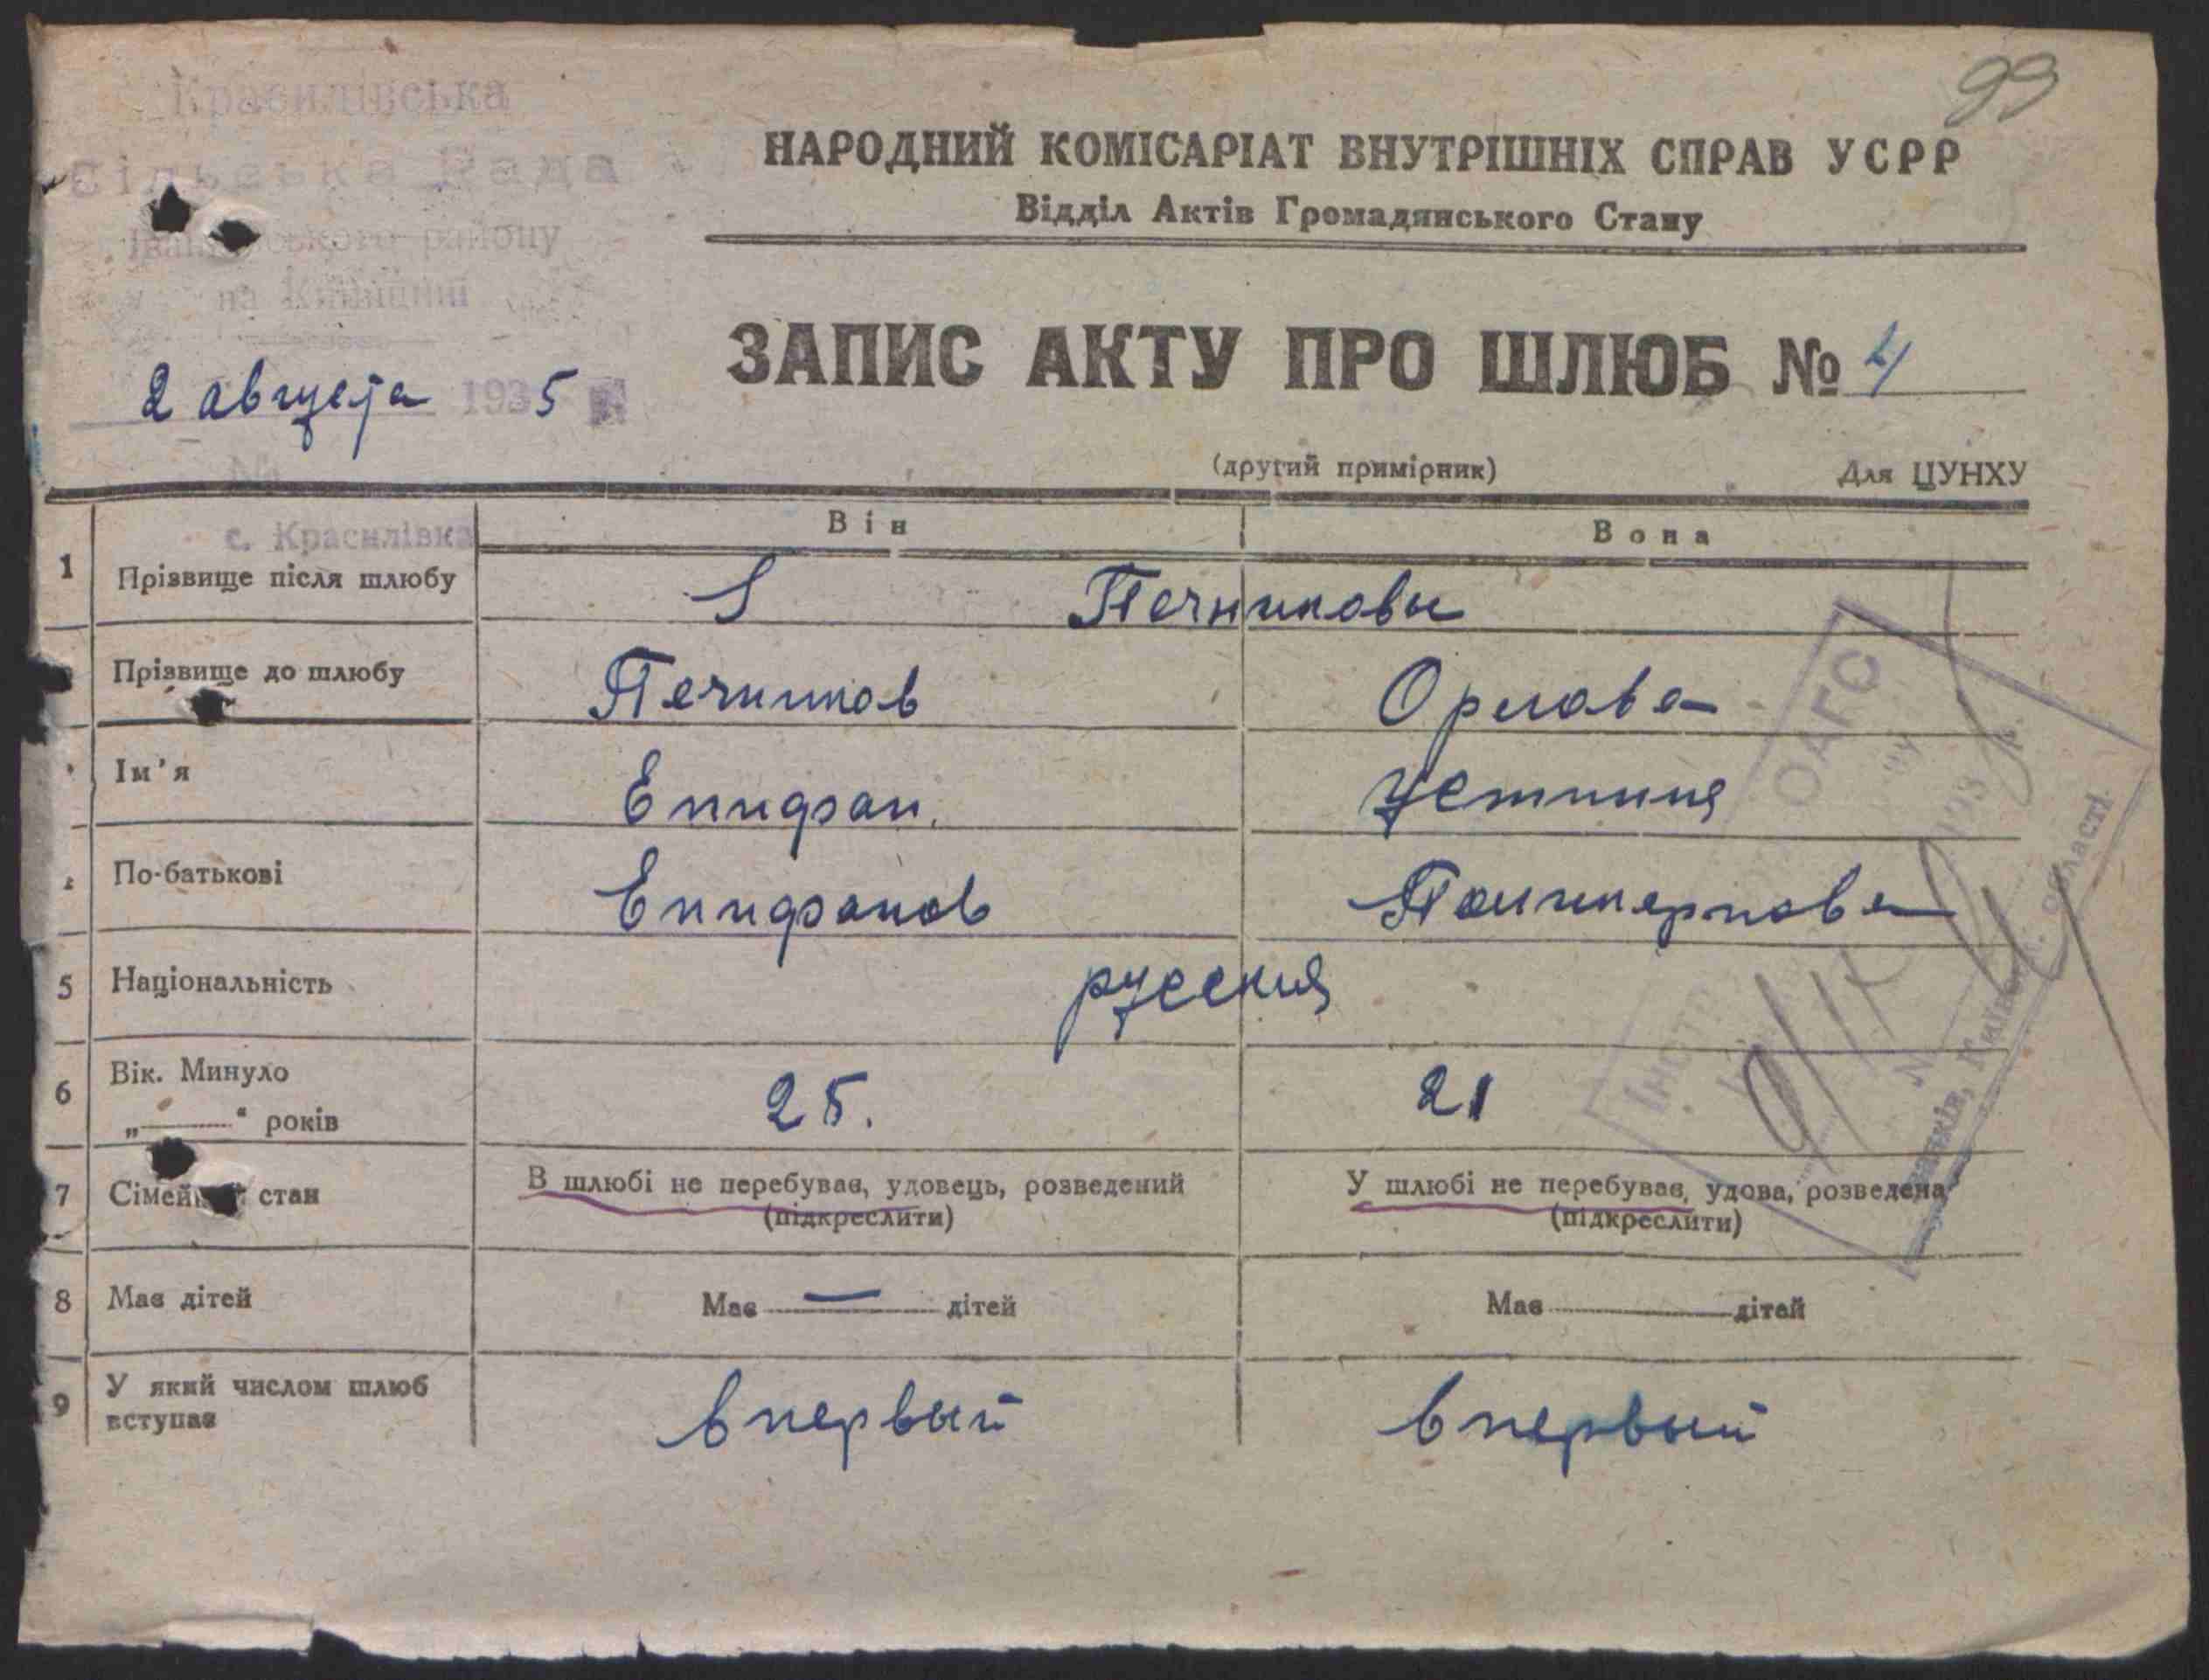 99
Красилівська
Сільська Рада
району
на Київщині
НАРОДНИЙ КОМІСАРІАТ ВНУТРІШНІХ СПРАВ УСРР
Відділ Актів Громадянського Стану
ЗАПИС АКТУ ПРО ШЛЮБ № 4
2 августа 1935 р.
(другий примірник) Для ЦУНХУ
с. Красилівка
Він Вона
1 Прізвище після шлюбу Печниковы
Прізвище до шлюбу Печников Орлова
Ім'я Епифан. Устиния
По-батькові Епифанов
5 Національність русския
6 Вік. Минуло 25. 21
„ “ років
7 Сімейний стан В шлюбі не перебував, удовець, розведений У шлюбі не перебував, удова, розведена
(підкреслити) (підкреслити)
8 Має дітей Має — дітей Має дітей
9 У який числом шлюб вступає впервый впервый
ОАГС
193 р.
області.